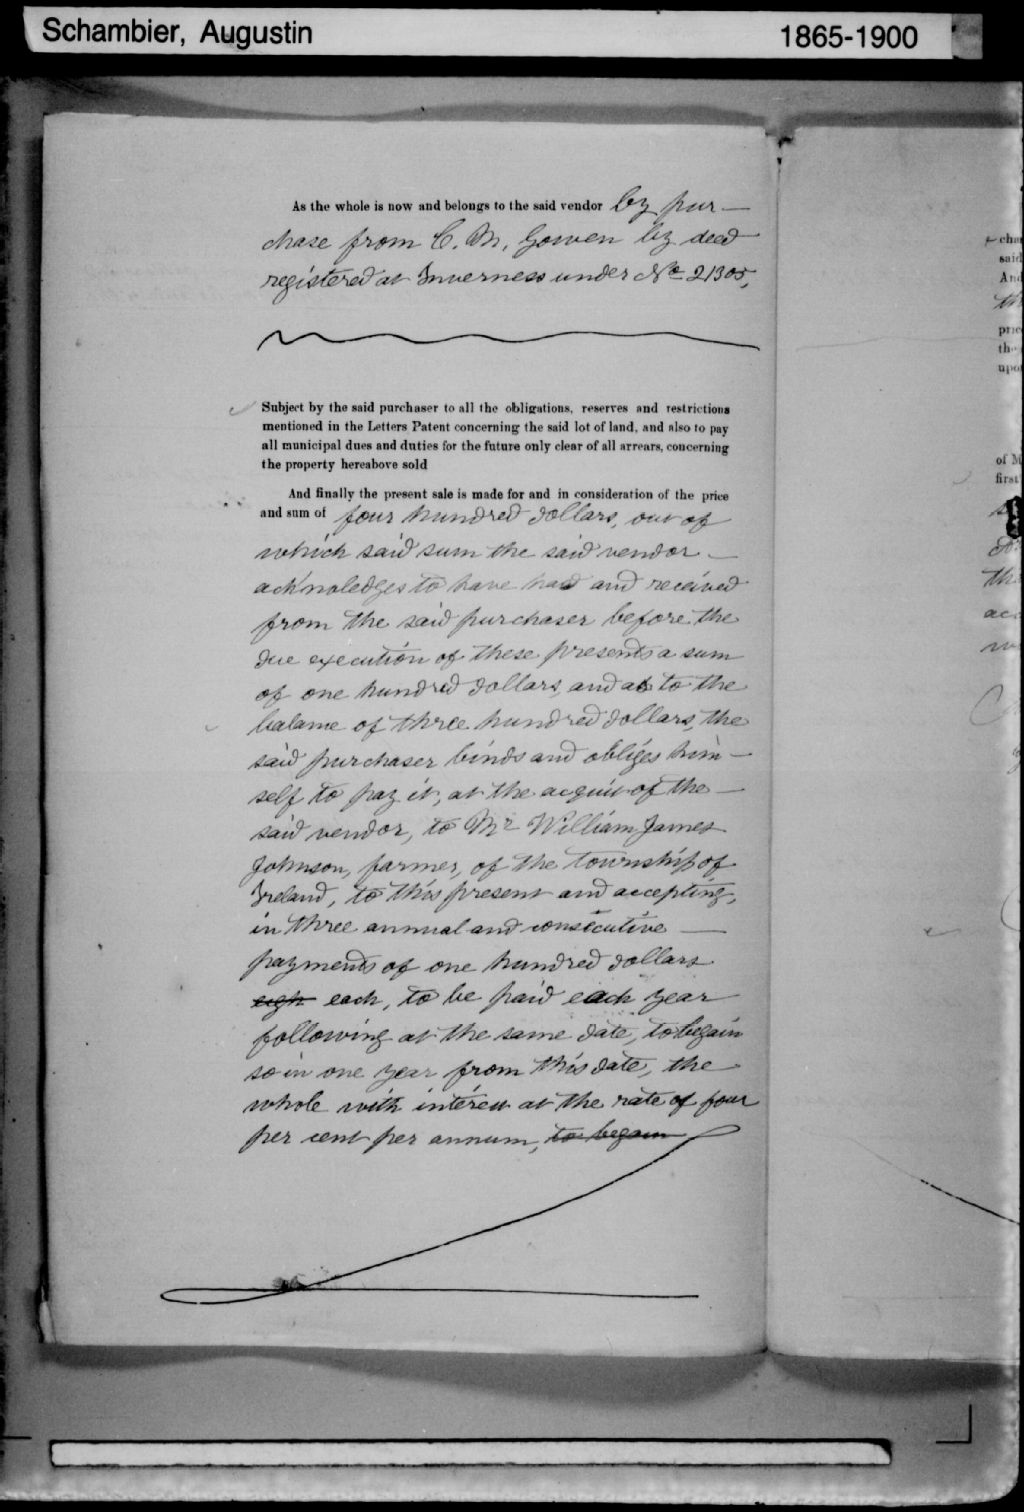 Schambier, Augustin 1865-1900
As the whole is now and belongs to the said vendor by pur-
chase from C. M. Gowen by deed
registered at Inverness under No 21305,
Subject by the said purchaser to all the obligations, reserves and restrictions
mentioned in the Letters Patent concerning the said lot of land, and also to pay
all municipal dues and duties for the future only clear of all arrears, concerning
the property hereabove sold
And finally the present sale is made for and in consideration of the price
and sum of four hundred dollars, out of
which said sum the said vendor
acknoledges to have had and received
from the said purchaser before the
due execution of these presents a sum
of one hundred dollars, and as to the
balame of three hundred dollars, the
said purchaser binds and obliges him-
self to pay it, at the acquit of the
said vendor, to Mr William James
Johnson, farmer, of the township of
Ireland, to this present and accepting,
in three annual and consecutive
payments of one hundred dollars
eigh each, to be paid each year
following at the same date, to begain
so in one year from this date, the
whole with interest at the rate of four
per cent per annum, to begain
said
And
the
upo
of M
first